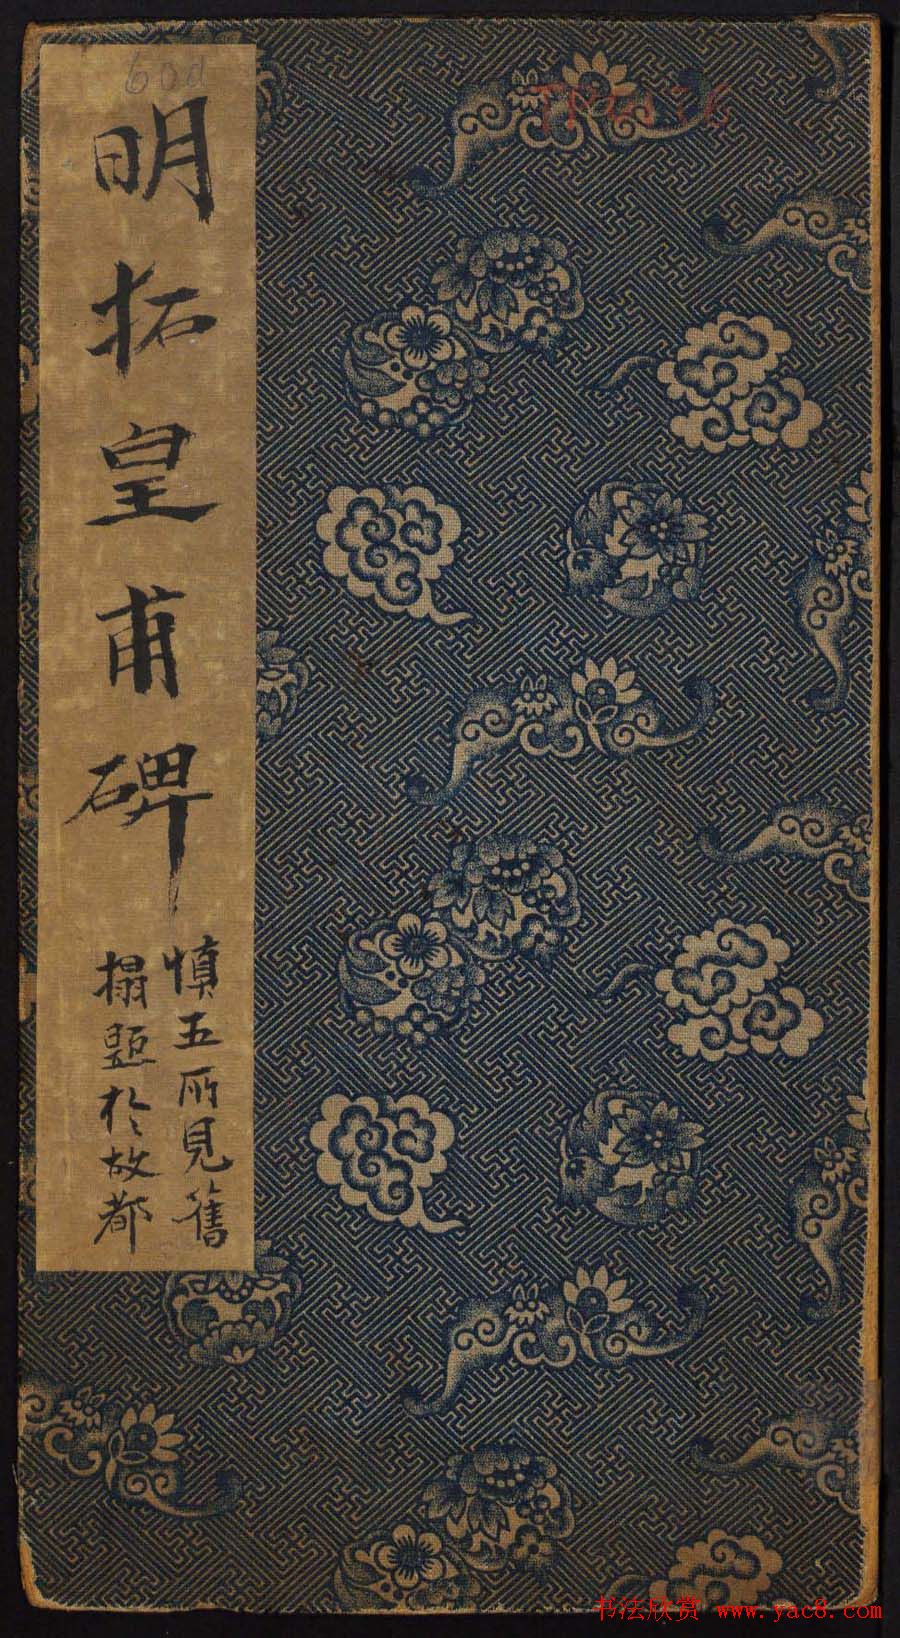 60d
明拓皇甫碑
慎五所見舊
搨題於故都
书法欣赏 www.yac8.com